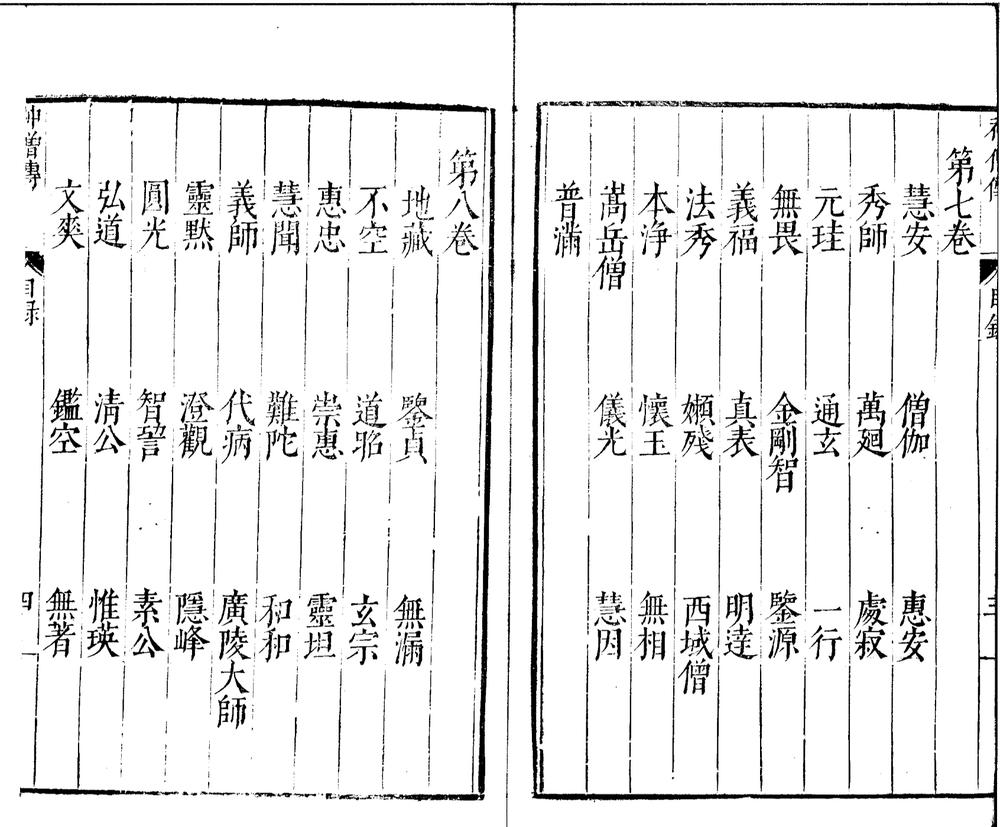 第七卷
慧安 僧伽 惠安
秀師 萬廻 處寂
元珪 通玄 一行
無畏 金剛智 鑒源
義福 真表 明達
法秀 嬾殘 西域僧
本淨 懷玉 無相
嵩岳僧 儀光 慧因
普滿
第八卷
地藏 鑒真 無漏
不空 道昭 玄宗
惠忠 崇惠 靈坦
慧聞 難陀 和和
義師 代病 廣陵大師
靈默 澄觀 隱峰
圓光 智 素公
弘道 清公 惟瑛
文爽 鑑空 無著
神僧傳 目録 四